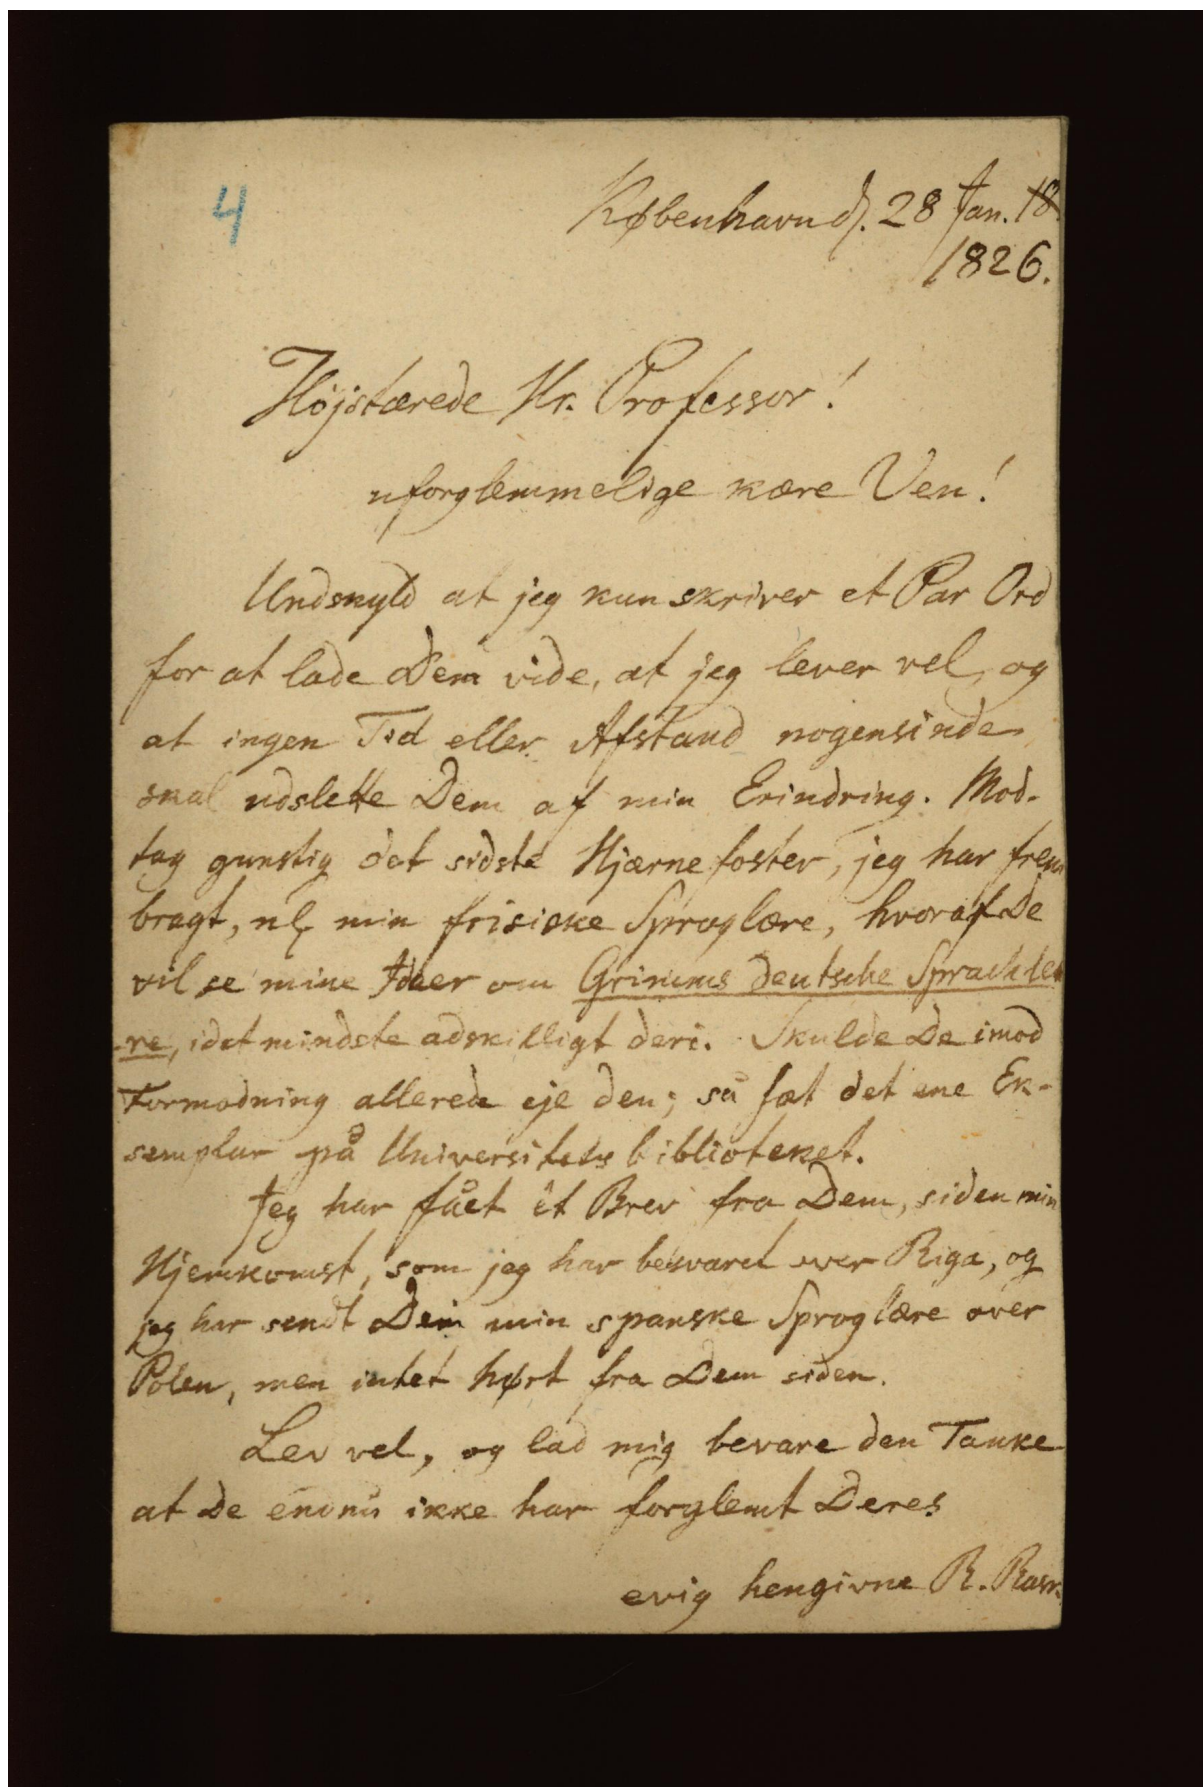 4
København d. 28 Jan. 18
1826.
Højstærede Hr. Professor!
uforglemmelige kære Ven!
Undskyld at jeg kun skriver et Par Ord
for at lade Dem vide, at jeg lever vel, og
at ingen Tid eller Afstand nogensinde
skal udslette Dem af min Erindring. Mod-
tag gunstig det sidste Hjærnefoster, jeg har frem
bragt, nl. min frisiske Sproglære, hvoraf De
vil se mine Ideer om Grimms deutsche Sprachleh
-re, idet mindste adskilligt deri. Skulde De imod
Formodning allerede eje den; så sæt det ene Ek-
semplar på Universitetsbiblioteket.
Jeg har fået ét Brev fra Dem, siden min
Hjemkomst, som jeg har besvaret over Riga, og
jeg har sendt Dem min spanske Sproglære over
Polen, men intet hørt fra Dem siden.
Lev vel, og lad mig bevare den Tanke
at De endnu ikke har forglemt Deres
evig hengivne R. Rask.